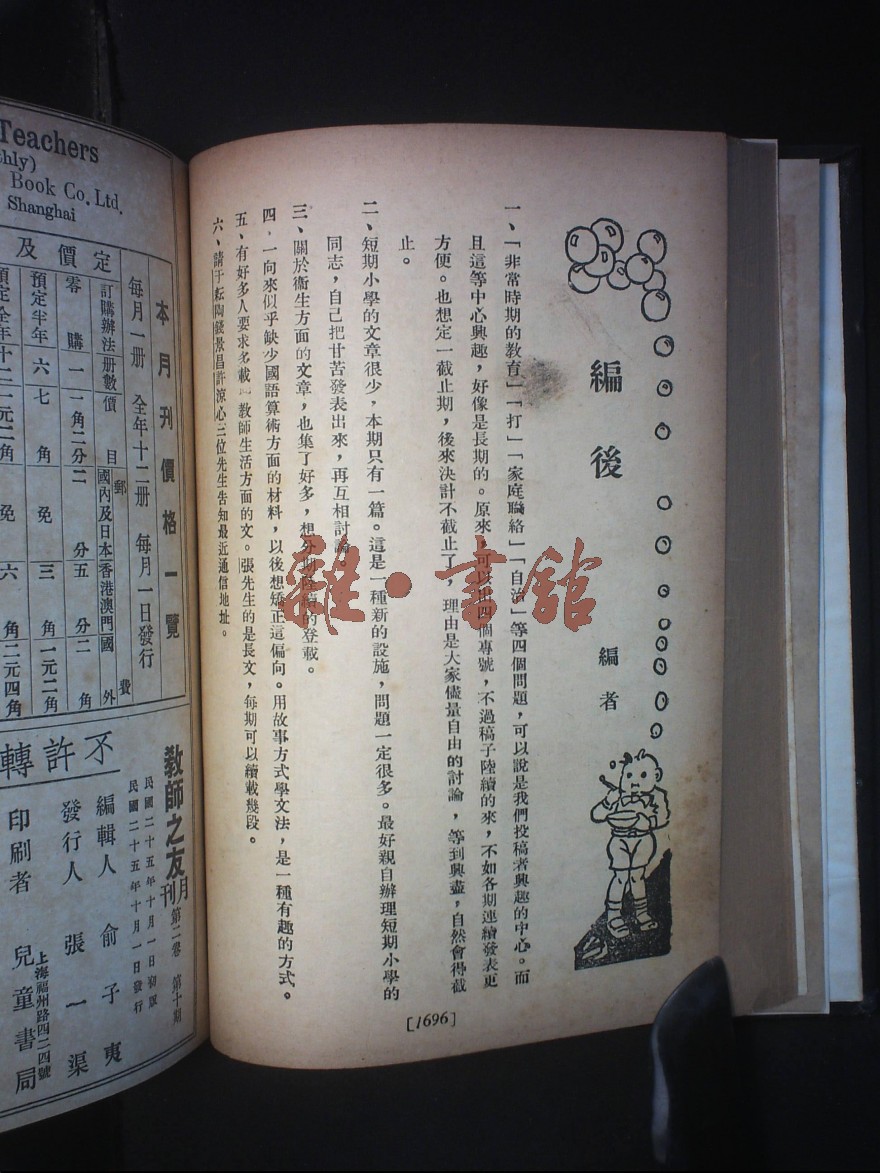 編後
編者
一、「非常時期的教育」「打」「家庭聯絡」「自治」等四個問題，可以說是我們投稿者興趣的中心。而
且這等中心興趣，好像是長期的。原來，可以出四個專號，不過稿子陸續的來，不如各期連續發表更
方便。也想定一截止期，後來決計不截止了，理由是大家儘量自由的討論，等到興盡，自然會得截
止。
二、短期小學的文章很少，本期只有一篇。這是一種新的設施，問題一定很多。最好親自辦理短期小學的
同志，自己把甘苦發表出來，再互相討論。
三、關於衞生方面的文章，也集了好多，想分期陸續的登載。
四、一向來似乎缺少國語算術方面的材料，以後想矯正這偏向。用故事方式學文法，是一種有趣的方式。
五、有好多人要求多載「教師生活方面的文。張先生的是長文，每期可以續載幾段。
六、請于耘陶錢景昌許涼心三位先生告知最近通信地址。
[1696]
雜·書館
Teachers
thly)
Book Co. Ltd.
Shanghai
本月刊價格一覽
每月一册 全年十二册 每月一日發行
定價及
訂購辦法 册數 價目 郵費
國內及日本 香港澳門 國外
零購 一 一角二分 二分 五分 二角
預定半年 六 七角 免 三角 一元二角
預定全年 十二 一元二角 免 六角 二元四角
教師之友月刊 第二卷 第十期
民國二十五年十月一日初版
民國二十五年十月一日發行
編輯人 俞子夷
發行人 張一渠
印刷者 兒童書局
上海福州路四二四號
不許轉